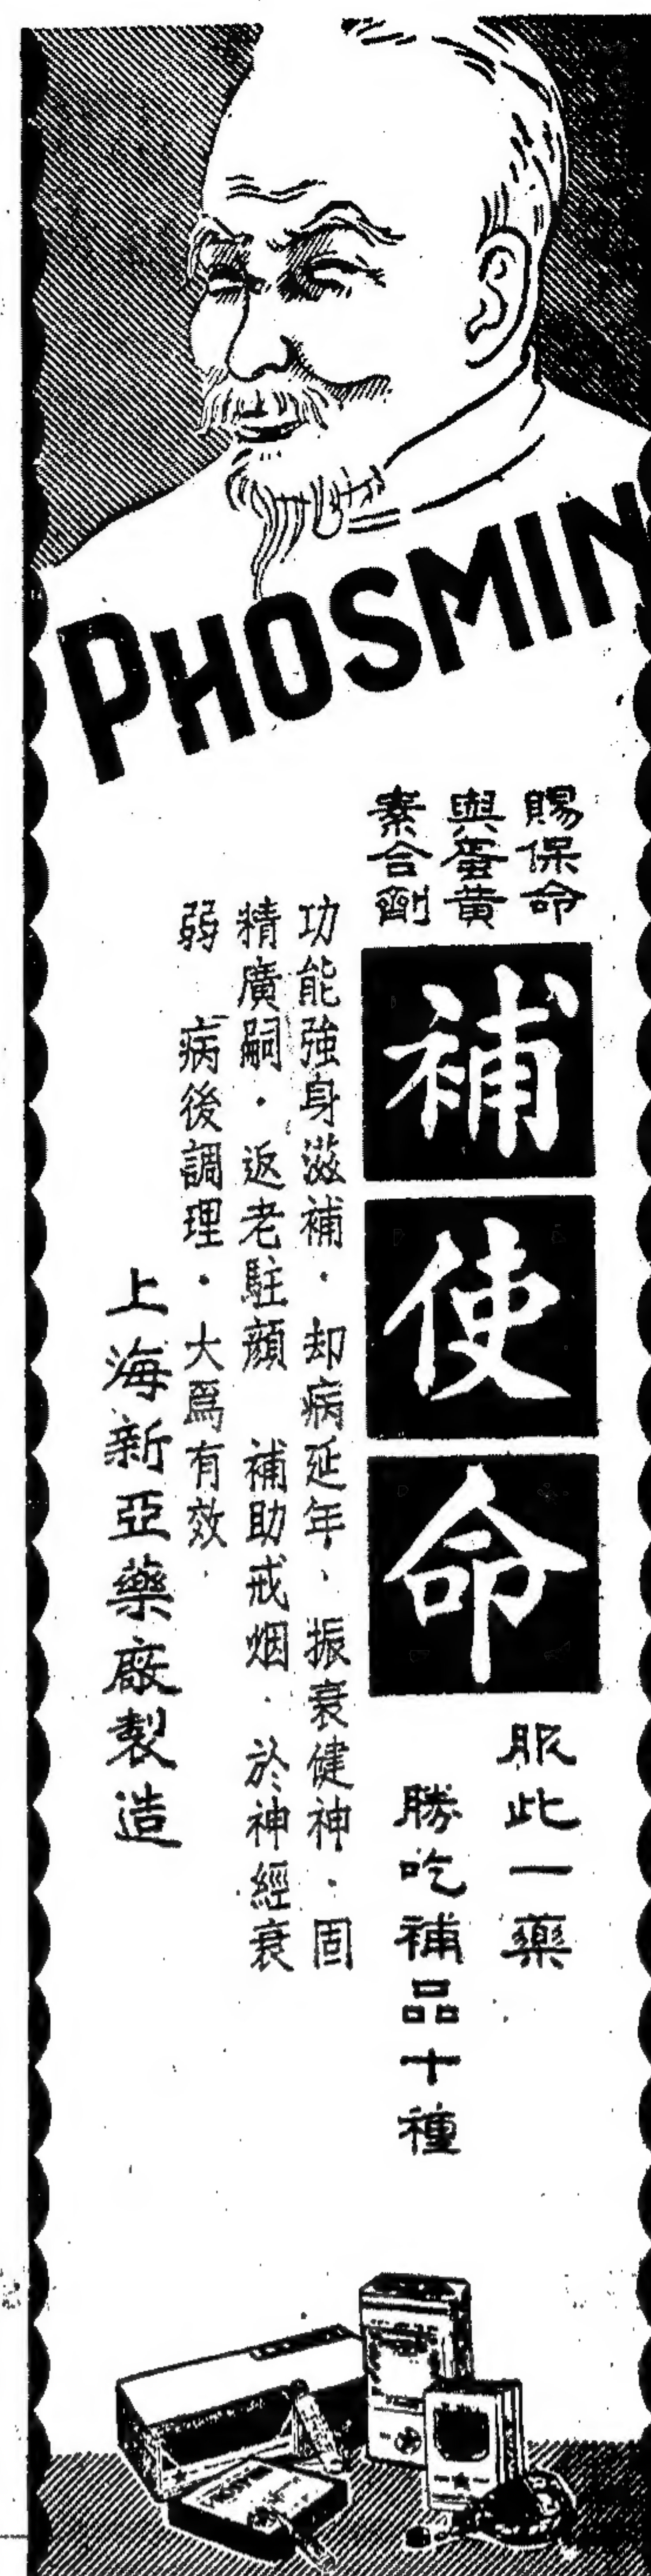 PHOSMIN
賜保命
與蛋黃
素合劑
補使命
服此一藥
勝吃補品十種
功能強身滋補．却病延年．振衰健神．固
精廣嗣．返老駐顏 補助戒烟．於神經衰
弱 病後調理．大爲有效．
上海新亞藥廠製造